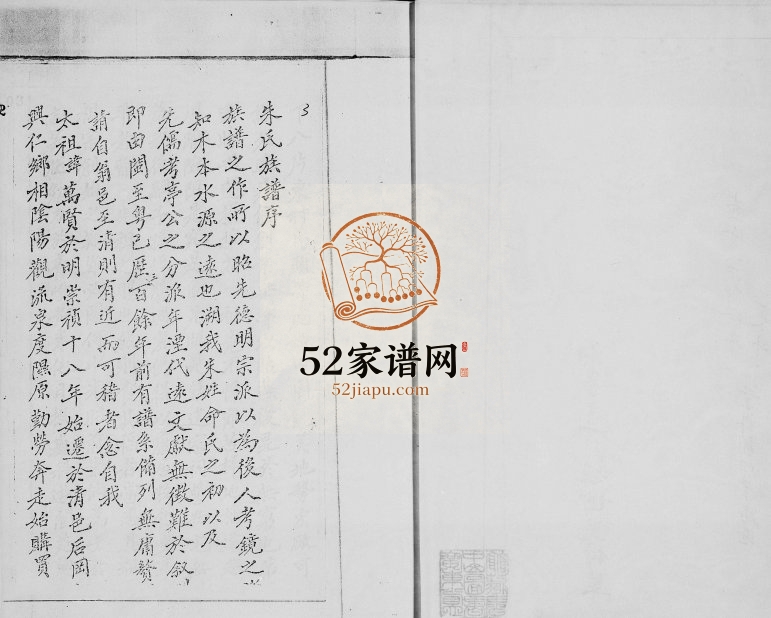 3
朱氏族譜序
族譜之作所以昭先德明宗派以為後人考鏡之
知木本水源之遠也溯我朱姓命氏之初以及
先儒考亭公之分派年湮代遠文獻無徵難於叙
即由閩至粵已歷三百餘年前有譜系條列無庸贅
請自翁邑至清則有近而可稽者念自我
太祖諱萬賢於明崇禎十八年始遷於清邑后岡
興仁鄉相陰陽觀流泉度隰原勤勞奔走始購買
2
52家谱网
52jiapu.com